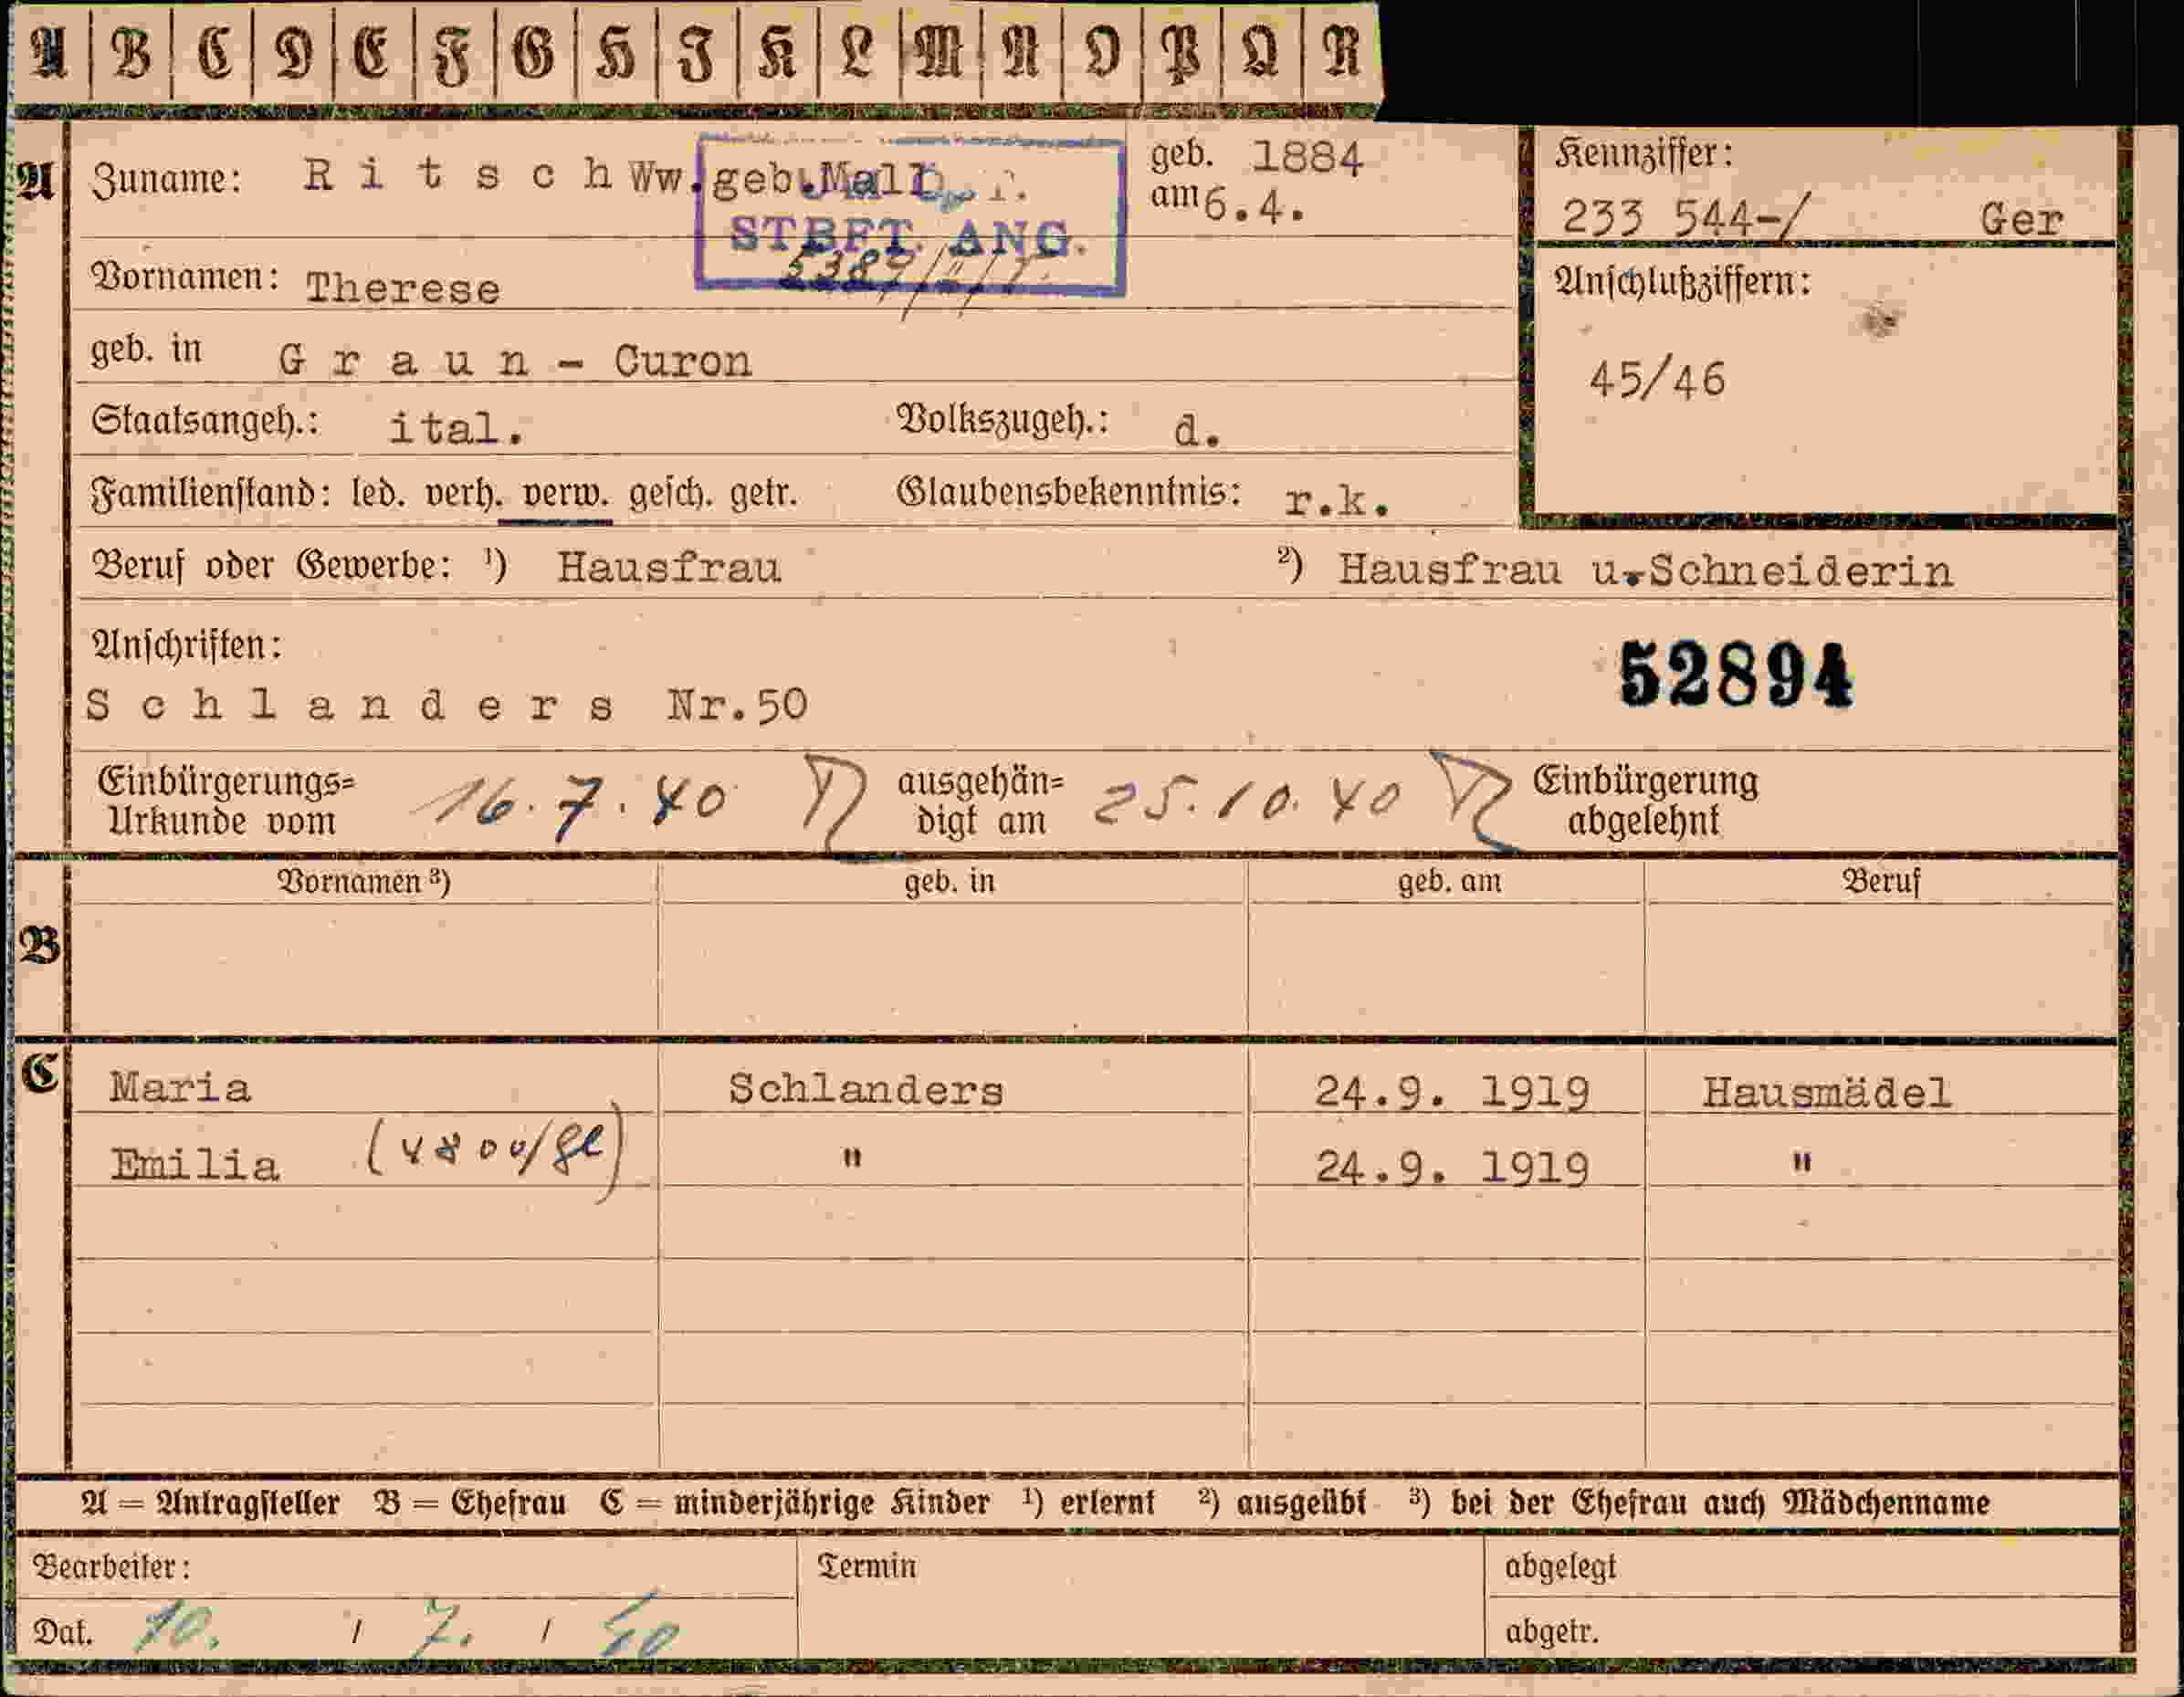 A B C D E F G H J K L M N O P Q R
A Zuname: Ritsch Ww. geb. Mall geb. 1884
am 6.4.
Kennziffer:
233 544-/ Ger
STBFT. ANG.
Vornamen: Therese
Anschlußziffern:
45/46
geb. in Graun - Curon
Staatsangeh.: ital. Volkszugeh.: d.
Familienstand: led. verh. verw. gesch. getr. Glaubensbekenntnis: r.k.
Beruf oder Gewerbe: ¹) Hausfrau ²) Hausfrau u. Schneiderin
Anschriften:
52894
Schlanders Nr.50
Einbürgerungs=
Urkunde vom 16.7.40 ausgehän=
digt am 25.10.40 Einbürgerung
abgelehnt
Vornamen ³) geb. in geb. am Beruf
B
C Maria Schlanders 24.9. 1919 Hausmädel
Emilia " 24.9. 1919 "
A = Antragsteller B = Ehefrau C = minderjährige Kinder ¹) erlernt ²) ausgeübt ³) bei der Ehefrau auch Mädchenname
Bearbeiter: Termin abgelegt
Dat. 10. / 7. / 40 abgetr.